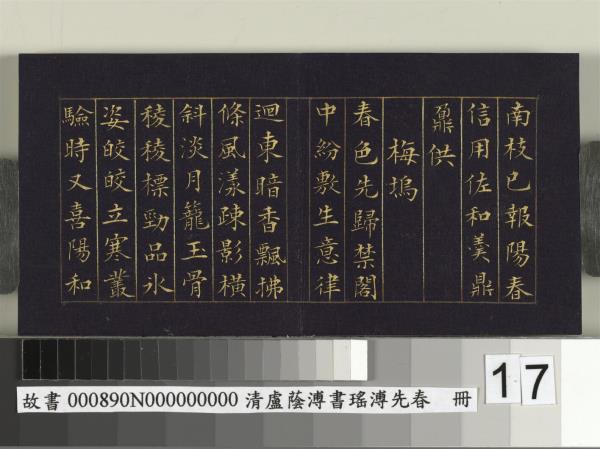 南枝已報陽春
信用佐和羹鼎
鼐供
梅塢
春色先歸禁閣
中紛敷生意律
迴東暗香飄拂
條風漾疎影橫
斜淡月籠玉骨
稜稜標勁品氷
姿皎皎立寒叢
驗時又喜陽和
17
故書 000890N000000000 清盧蔭溥書瑤溥先春 冊